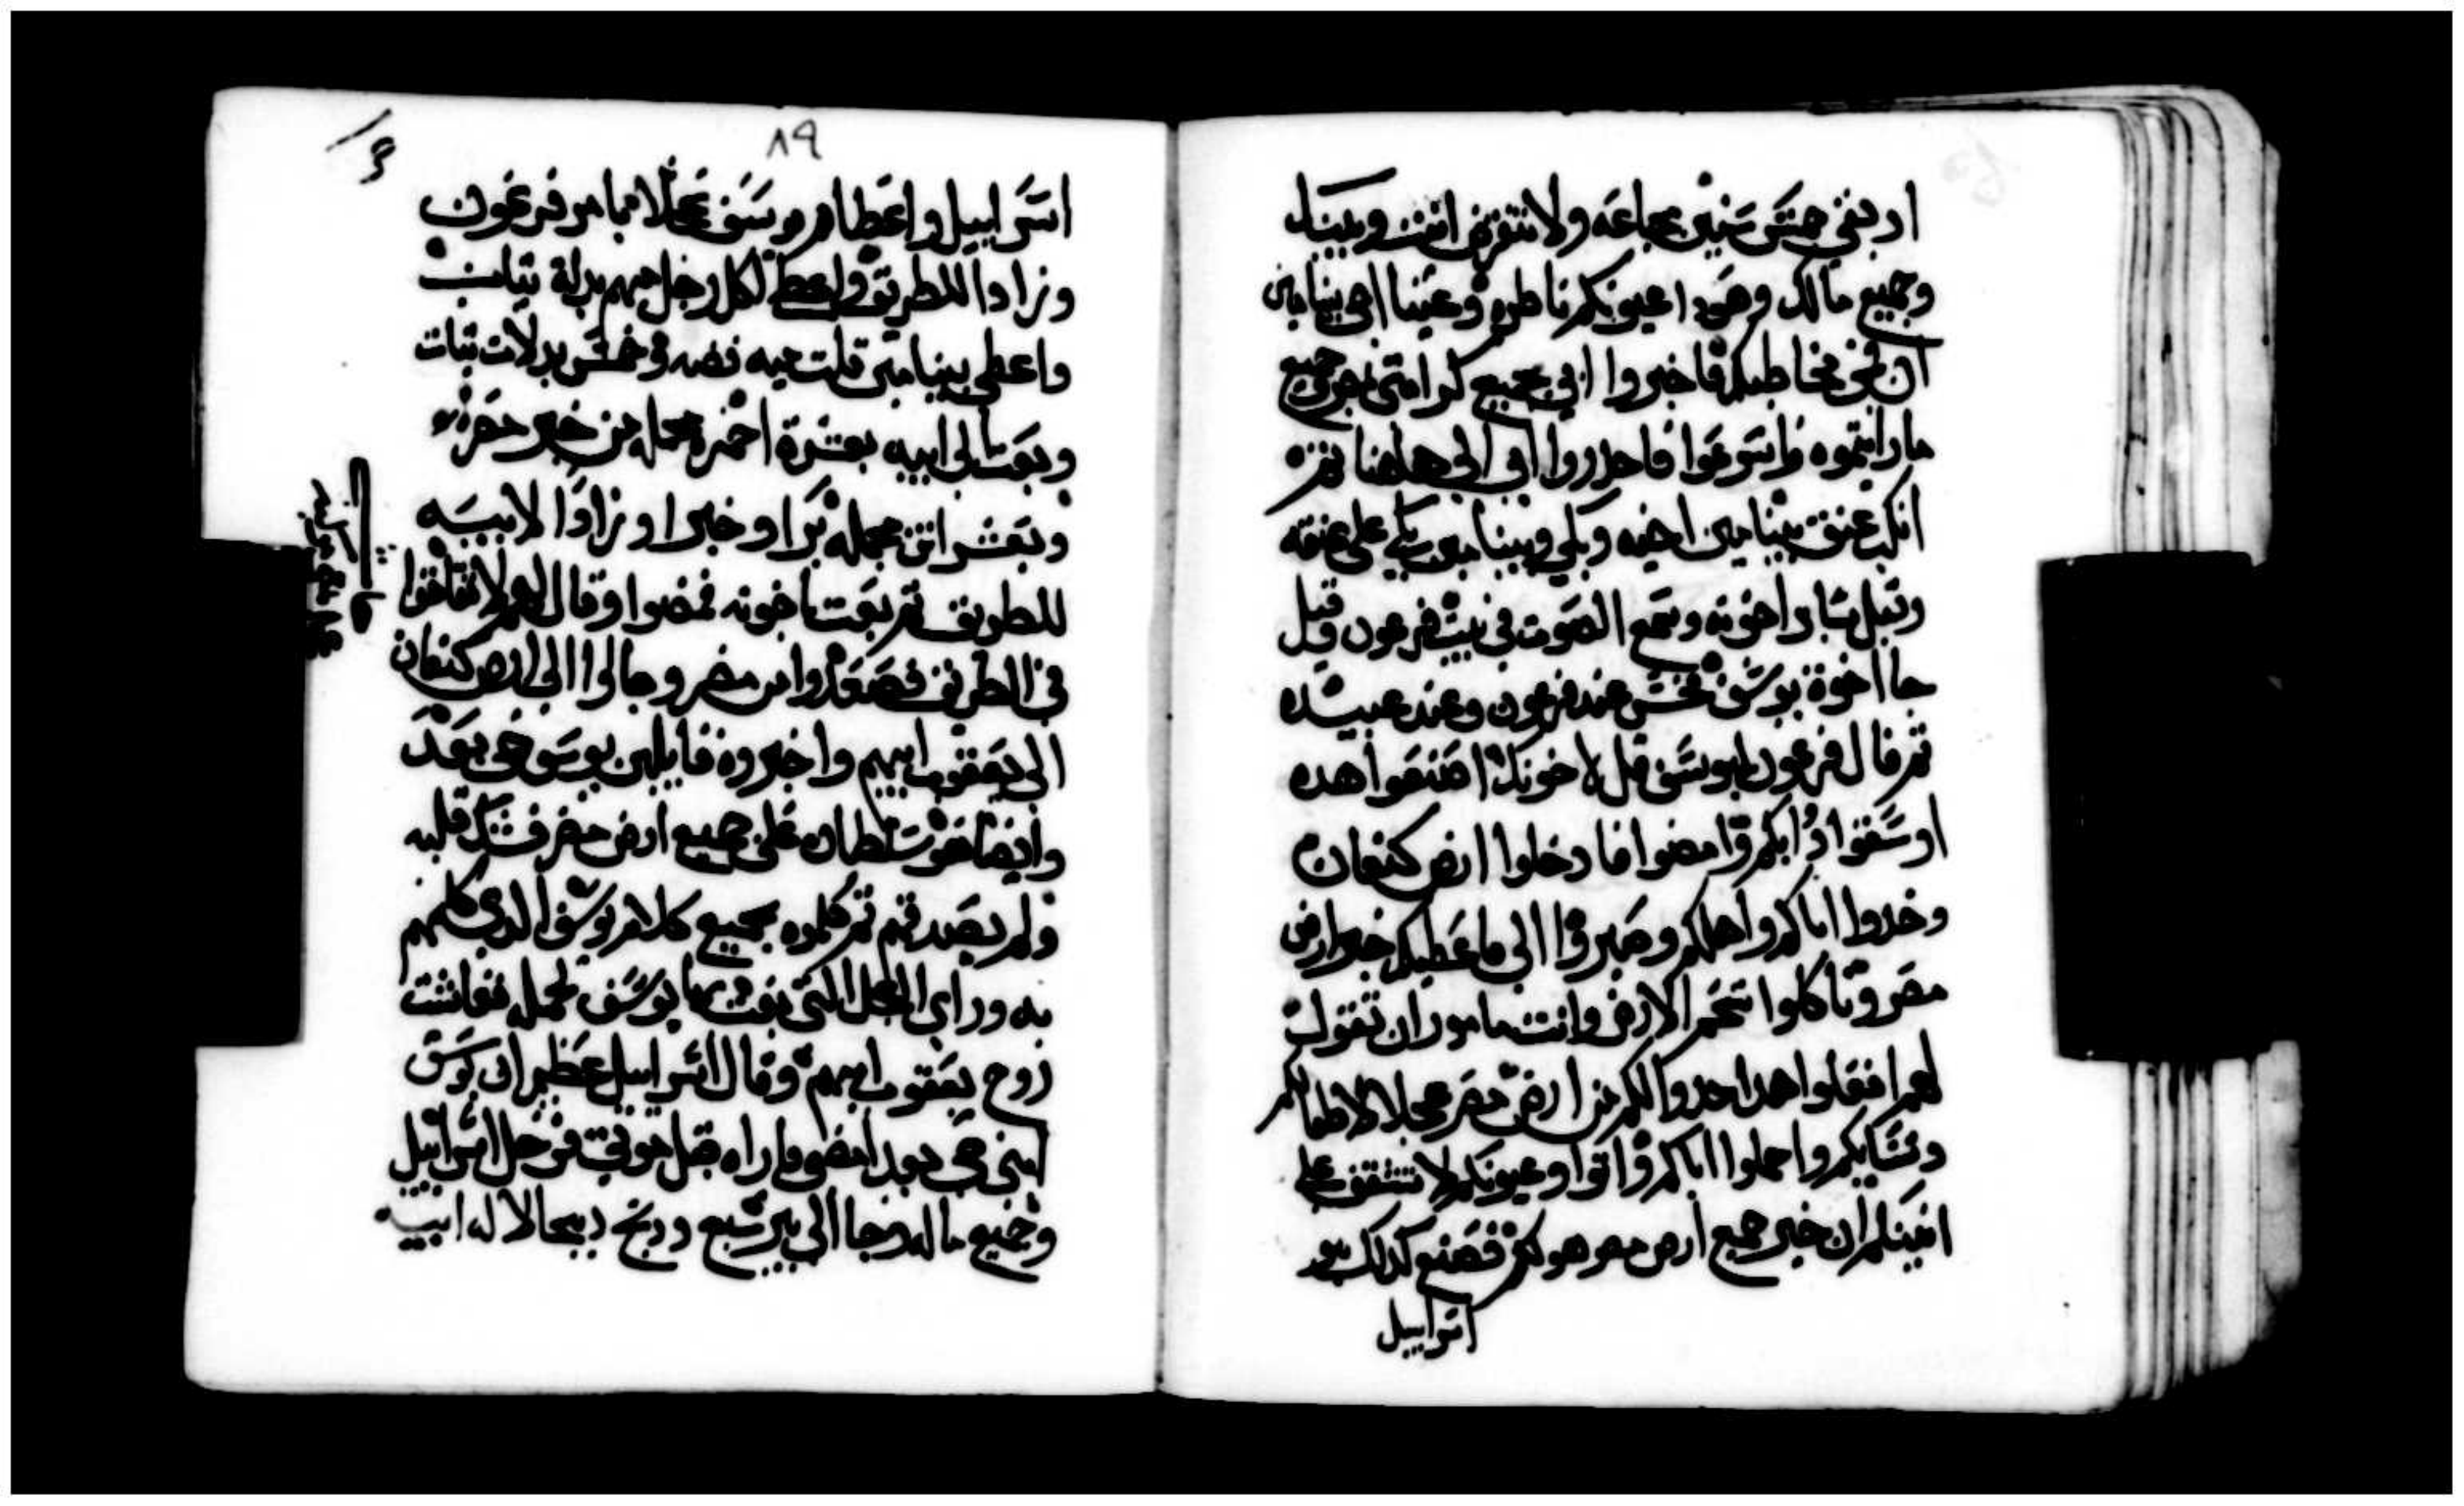 اد بقي خمس سنين مجاعه ولا تنقرض انت وبيتك
وجميع مالك وهودا عيونكم ناظره وعينا اخي بنيامين
ان في مخاطبكم فاخبروا ابي بجميع كرامتي بمصر وجميع
ما رايتموه واسرعوا فاحدروا ابي الي هاهنا تم
انكب عنق بنيامين اخيه وبكي وبنيامين بكي علي عنقه
وقبل ساير اخوته وسمع الصوت في بيت فرعون وقيل
جا اخوة يوسف فحسن عند فرعون وعند عبيده
تم قال فرعون ليوسف قل لاخوتك اصنعوا هده
اوسقوا دوابكم وامضوا فادخلوا ارض كنعان
وخدوا اباكم واهلكم وصيروا الي فاعطيكم خير ارض
مصر وتاكلوا شحم الارض وانت مامور ان تقول
لهم افعلوا هدا خدوا لكم من ارض مصر عجلا لاطفالكم
ونسايكم واحملوا اباكم واتوا وعيونكم لا تشفق علي
انيتكم ان خير جميع ارض مصر هو لكم فصنع كدلك بنو
اسراييل
٨٩
اسراييل واعطاهم يوسف عجلا بامر فرعون
وزادا للطريق واعطي لكل رجل منهم بدلة تياب
واعطي بنيامين تلت ميه فضه وخمس بدلات تياب
وبعت الي ابيه بعشرة احمره محمله من خير مصر
وبعشر اتن محمله برا وخبزا وزادا لابيه
للطريق تم بعت باخوته فمضوا وقال لهم لا تتخاصموا
في الطريق فصعدوا من مصر وجاوا الي ارض كنعان
الي يعقوب ابيهم واخبروه قايلين يوسف حي بعد
وايضا هو سلطان علي جميع ارض مصر فشك قلبه
ولم يصدقهم تم كلموه بجميع كلام يوسف الدي كلمهم
به وراي العجل التي بعت بها يوسف لحمله فعاشت
روح يعقوب ابيهم وقال اسراييل عظيم ان يوسف
ابني حي بعد امضي واراه قبل موتي فرحل اسراييل
وجميع ماله وجا الي بير سبع ودبح دبيحا لاله ابيه